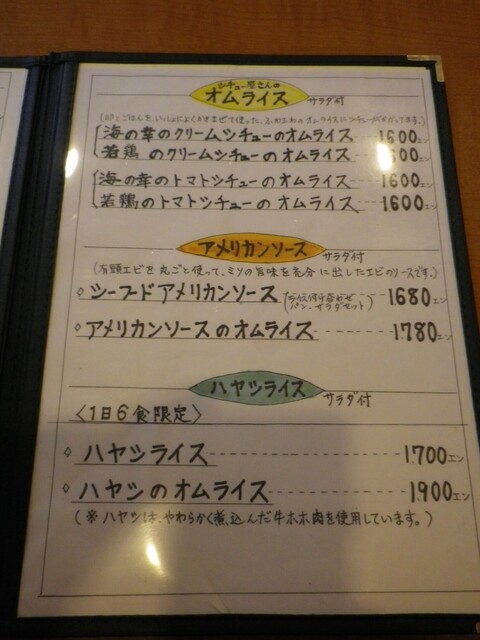 シチュー屋さんの
オムライス サラダ付
海の幸のクリームシチューのオムライス 1600エン
若鶏のクリームシチューのオムライス 600エン
海の幸のトマトシチューのオムライス 1600エン
若鶏のトマトシチューのオムライス 1600エン
アメリカンソース サラダ付
(有頭エビを丸ごと使って、ミソの旨味を充分に出したエビのソースです。)
◇シーフードアメリカンソース パン、サラダセット) 1680エン
◇アメリカンソースのオムライス 1780エン
ハヤシライス サラダ付
〈1日6食限定〉
◇ハヤシライス 1700エン
◇ハヤシのオムライス 1900エン
(※ハヤシは、やわらかく煮込んだ牛ホホ肉を使用しています。)